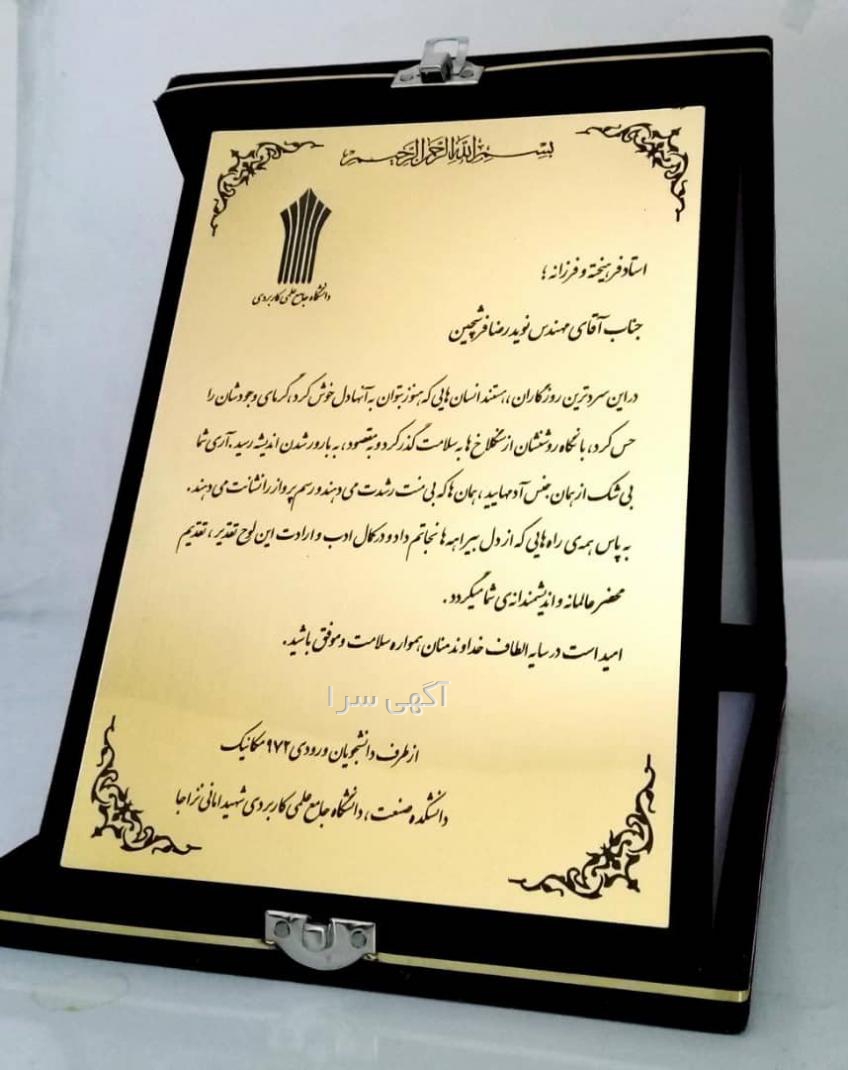 بسم الله الرحمن الرحیم
دانشگاه جامع علمی کاربردی
استاد فرهیخته و فرزانه ؛
جناب آقای مهندس نوید رضا فرشچین
در این سردترین روزگاران ، هستند انسان هایی که هنوز بتوان به آنها دل خوش کرد ، گرمای وجودشان را
حس کرد ، با نگاه روشنشان از سنگلاخ ها به سلامت گذر کرد و به مقصود ، به بارور شدن اندیشه رسید . آری شما
بی شک از همان جنس آدمهایید ، همان ها که بی منت رشدت می دهند و رسم پرواز را نشانت می دهند .
به پاس همه ی راه هایی که از دل بیراهه ها نجاتم داد و در کمال ادب و ارادت این لوح تقدیر ، تقدیم
محضر عالمانه و اندیشمندانه ی شما میگردد .
امید است در سایه الطاف خداوند منان همواره سلامت و موفق باشید .
آگهی سرا
از طرف دانشجویان ورودی ۹۷۲ مکانیک
دانشکده صنعت ، دانشگاه جامع علمی کاربردی شهید امانی نزاجا